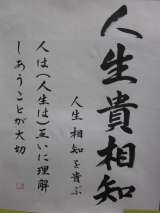 人生貴相知
人生 相知を貴ぶ
人は(人生は)互いに理解
しあうことが大切